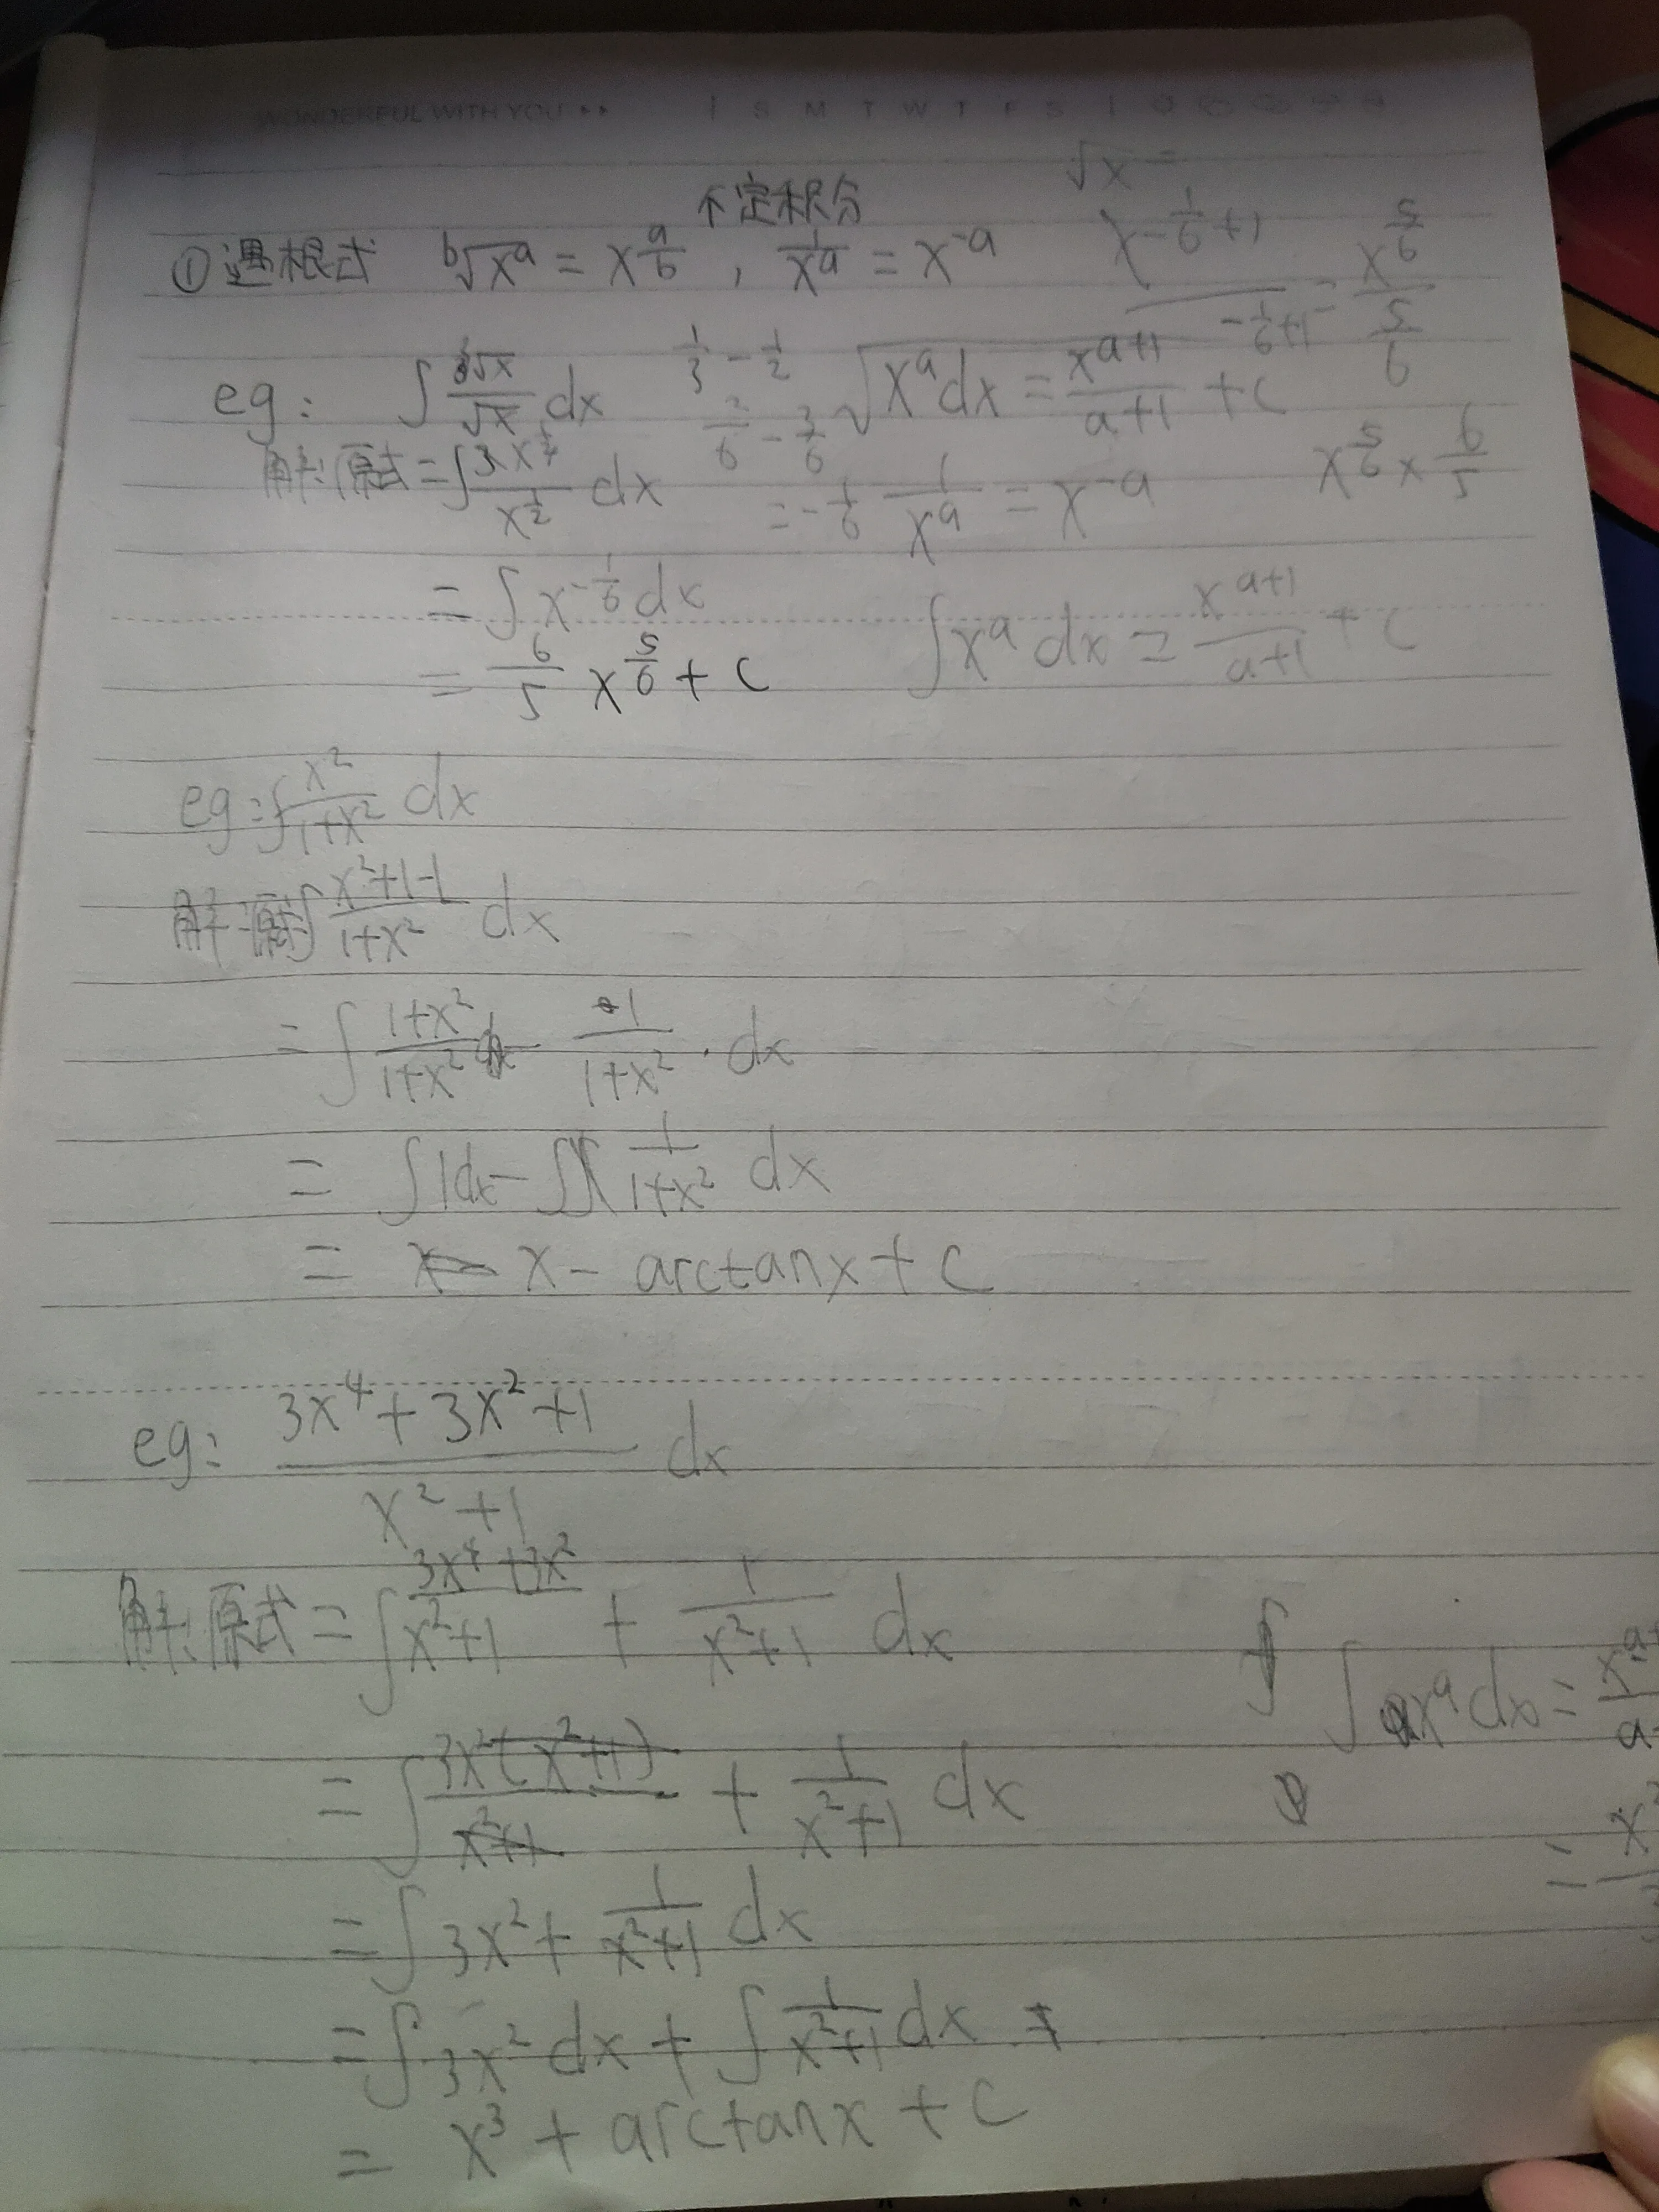 WONDERFUL WITH YOU
S M T W T F S
不定积分
√x =
①遇根式 ᵇ√xᵃ = x^(a/b) , 1/xᵃ = x^-a
x^(-1/6+1) / (-1/6+1) = x^(5/6) / (5/6)
eg: ∫ ³√x/√x dx
1/3 - 1/2
√xᵃdx = x^(a+1)/(a+1) + C
2/6 - 3/6
解:原式 = ∫ x^(1/3) / x^(1/2) dx
= -1/6
1/xᵃ = x^-a
x^(5/6) × 6/5
= ∫ x^(-1/6) dx
∫ xᵃ dx = x^(a+1)/(a+1) + C
= 6/5 x^(5/6) + C
eg: ∫ x²/(1+x²) dx
解:原式 ∫ (x²+1-1)/(1+x²) dx
= ∫ (1+x²)/(1+x²) - 1/(1+x²) · dx
= ∫ 1dx - ∫ 1/(1+x²) dx
= x - arctanx + C
eg: (3x⁴+3x²+1)/(x²+1) dx
解:原式 = ∫ (3x⁴+3x²)/(x²+1) + 1/(x²+1) dx
∫ xᵃ dx =
= ∫ 3x²(x²+1)/(x²+1) + 1/(x²+1) dx
= ∫ 3x² + 1/(x²+1) dx
= ∫ 3x² dx + ∫ 1/(x²+1) dx +
= x³ + arctanx + C